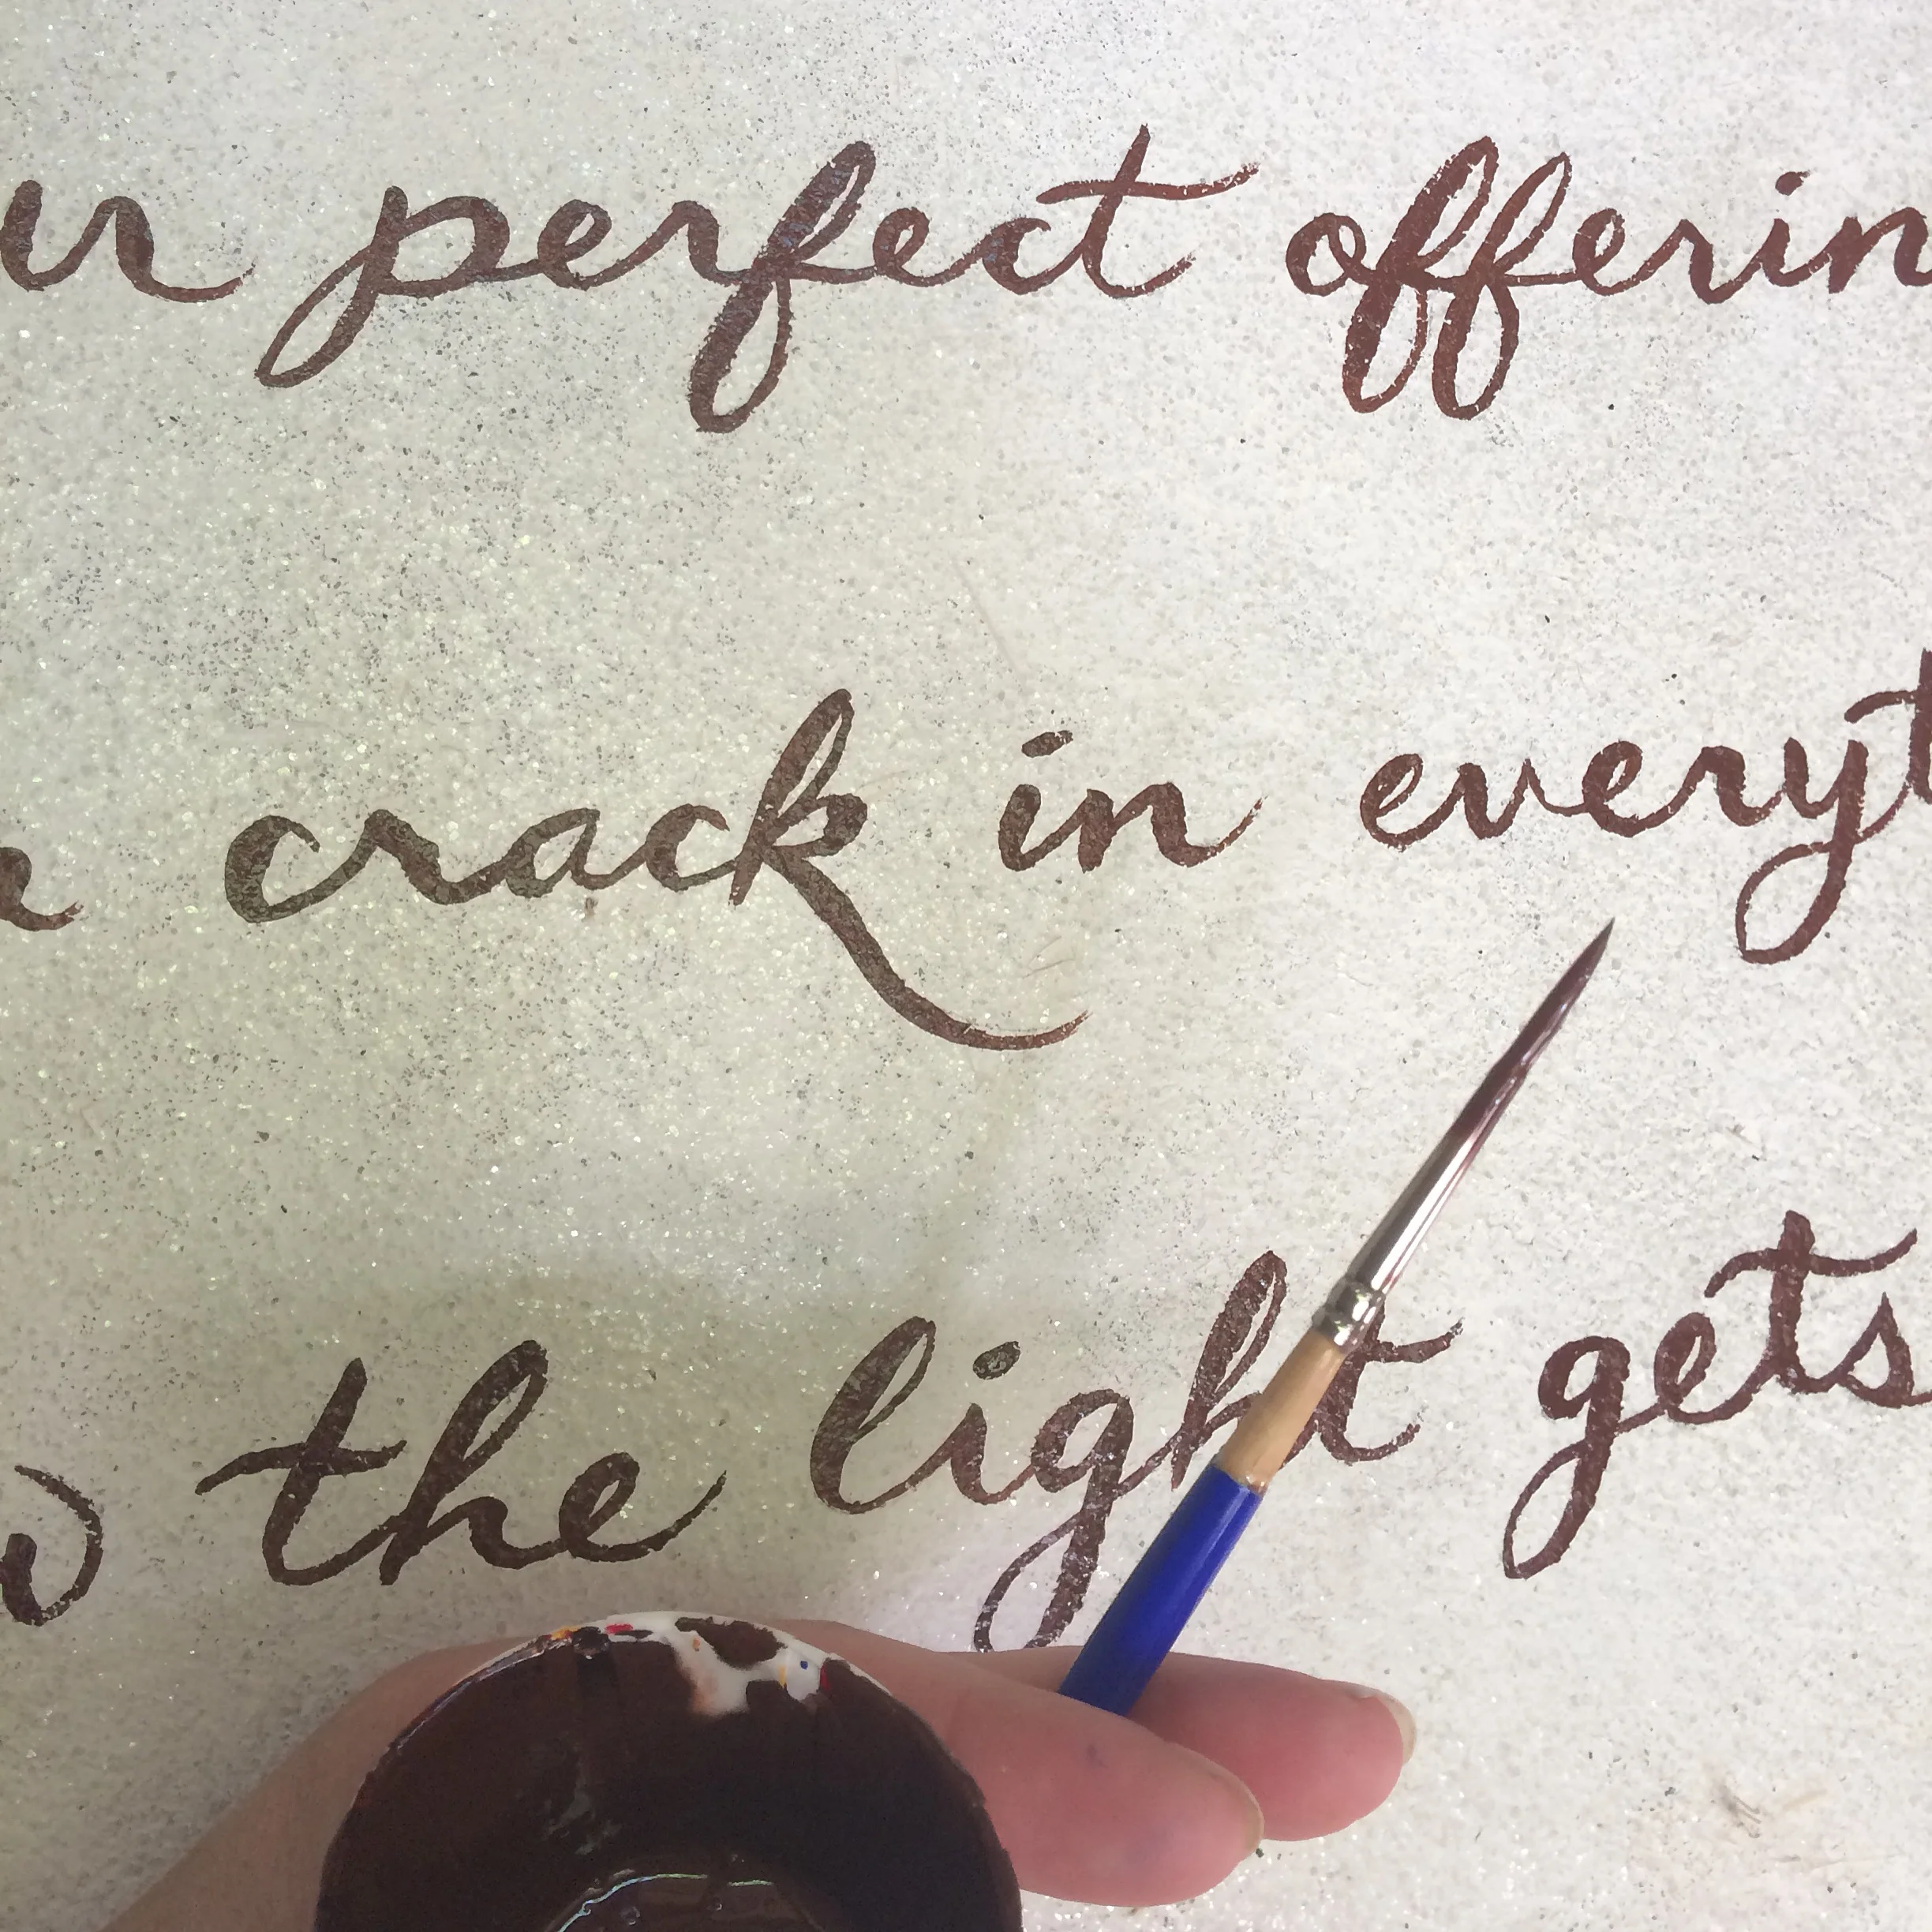 ur perfect offerin
a crack in everyt
w the light gets